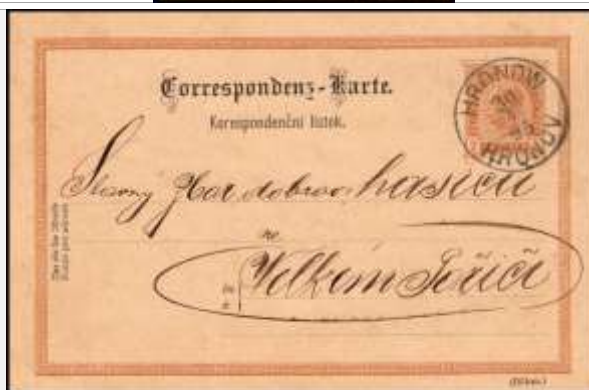 Correspondenz-Karte.
Korespondenční lístek.
HRONOW
30
95
HRONOV
Slavný sbor dobrov. hasičů
ve
Velkém Poříčí
(Böhm.)